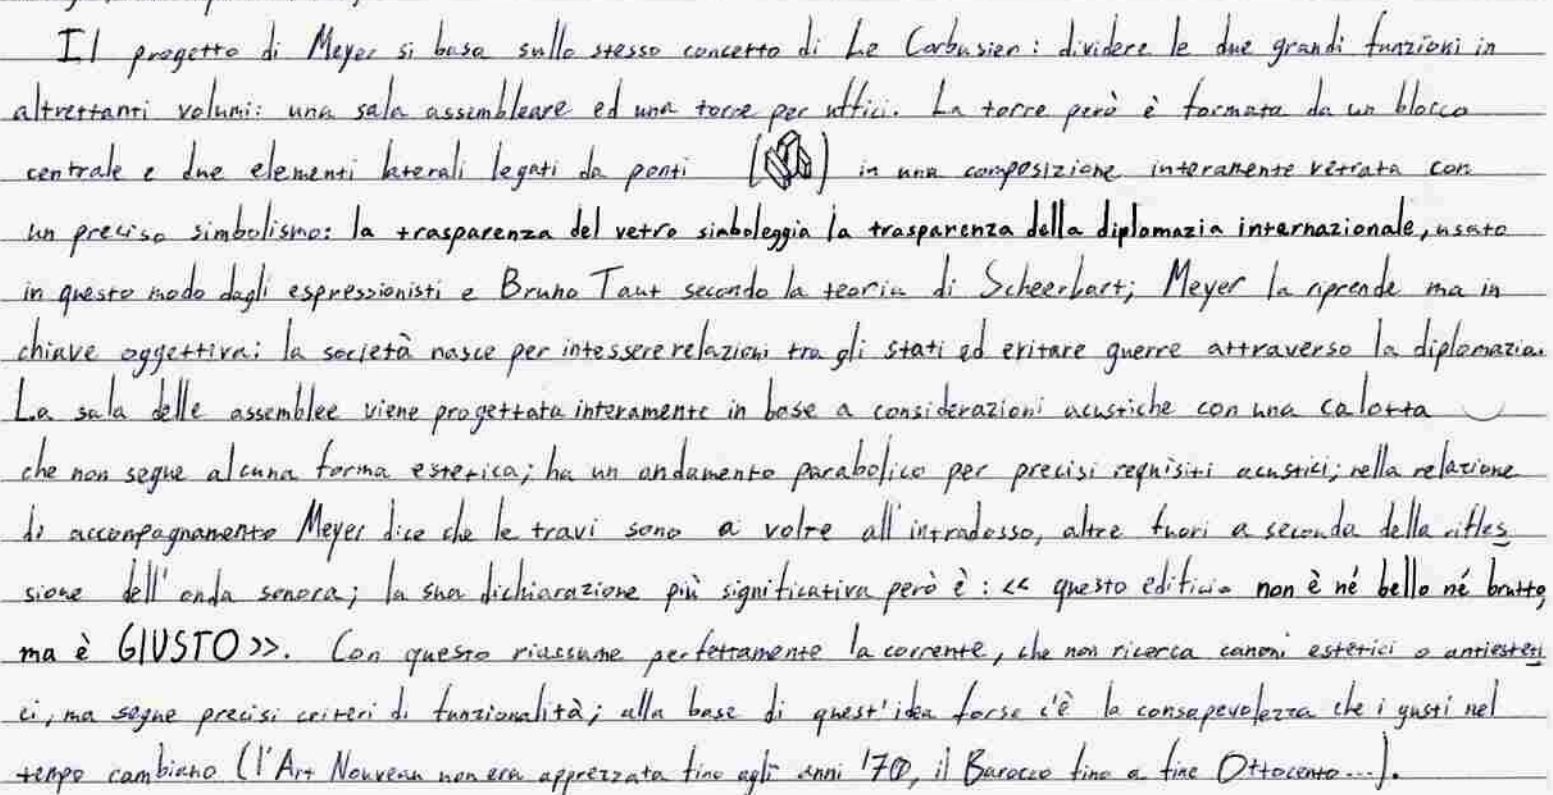 Il progetto di Meyer si basa sullo stesso concetto di Le Corbusier: dividere le due grandi funzioni in
altrettanti volumi: una sala assembleare ed una torre per uffici. La torre però è formata da un blocco
centrale e due elementi laterali legati da ponti ( ) in una composizione interamente vetrata con
un preciso simbolismo: la trasparenza del vetro simboleggia la trasparenza della diplomazia internazionale, usato
in questo modo dagli espressionisti e Bruno Taut secondo la teoria di Scheerbart; Meyer la riprende ma in
chiave oggettiva: la società nasce per intessere relazioni tra gli stati ed evitare guerre attraverso la diplomazia.
La sala delle assemblee viene progettata interamente in base a considerazioni acustiche con una calotta
che non segue alcuna forma estetica; ha un andamento parabolico per precisi requisiti acustici; nella relazione
di accompagnamento Meyer dice che le travi sono a volte all'intradosso, altre fuori a seconda della rifles
sione dell'onda sonora; la sua dichiarazione più significativa però è: << questo edificio non è né bello né brutto,
ma è GIUSTO>>. Con questo riassume perfettamente la corrente, che non ricerca canoni estetici o antiesteti
ci, ma segue precisi criteri di funzionalità; alla base di quest'idea forse c'è la consapevolezza che i gusti nel
tempo cambiano (l'Art Nouveau non era apprezzata fino agli anni '70, il Barocco fino a fine Ottocento...).